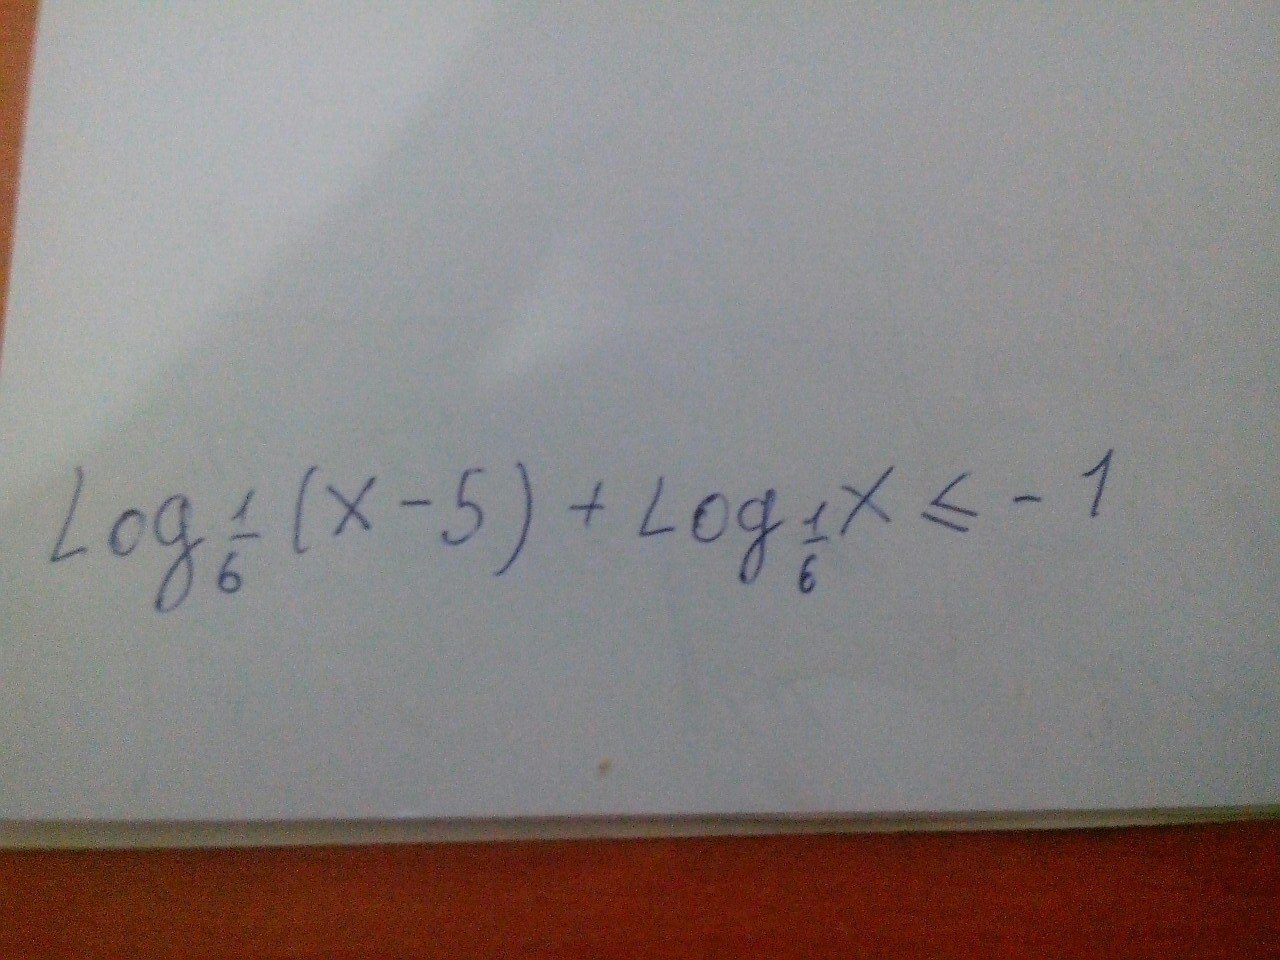 Log 1/6 (x-5) + Log 1/6 x ≤ -1